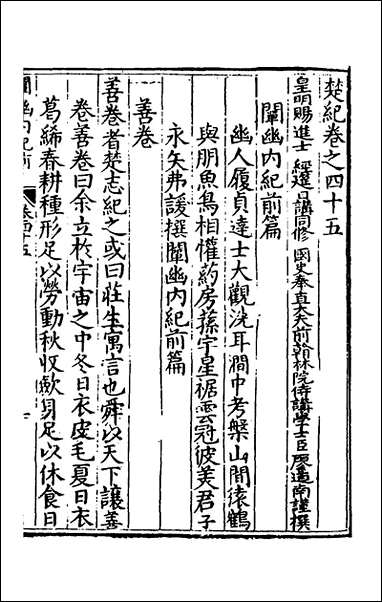 楚紀卷之四十五
皇明賜進士 經筵日講同修 國史奉直大夫前翰林院侍講學士臣廖道南謹撰
闡幽內紀前篇
幽人履貞達士大觀洗耳澗中考槃山間猿鶴
與朋魚鳥相懽葯房蓀宇星裾雲冠彼美君子
永矢弗諼撰闡幽內紀前篇
善卷
善卷者楚志紀之或曰莊生寓言也舜以天下讓善
卷善卷曰余立於宇宙之中冬日衣皮毛夏日衣
葛絺春耕種形足以勞動秋收歛身足以休食日